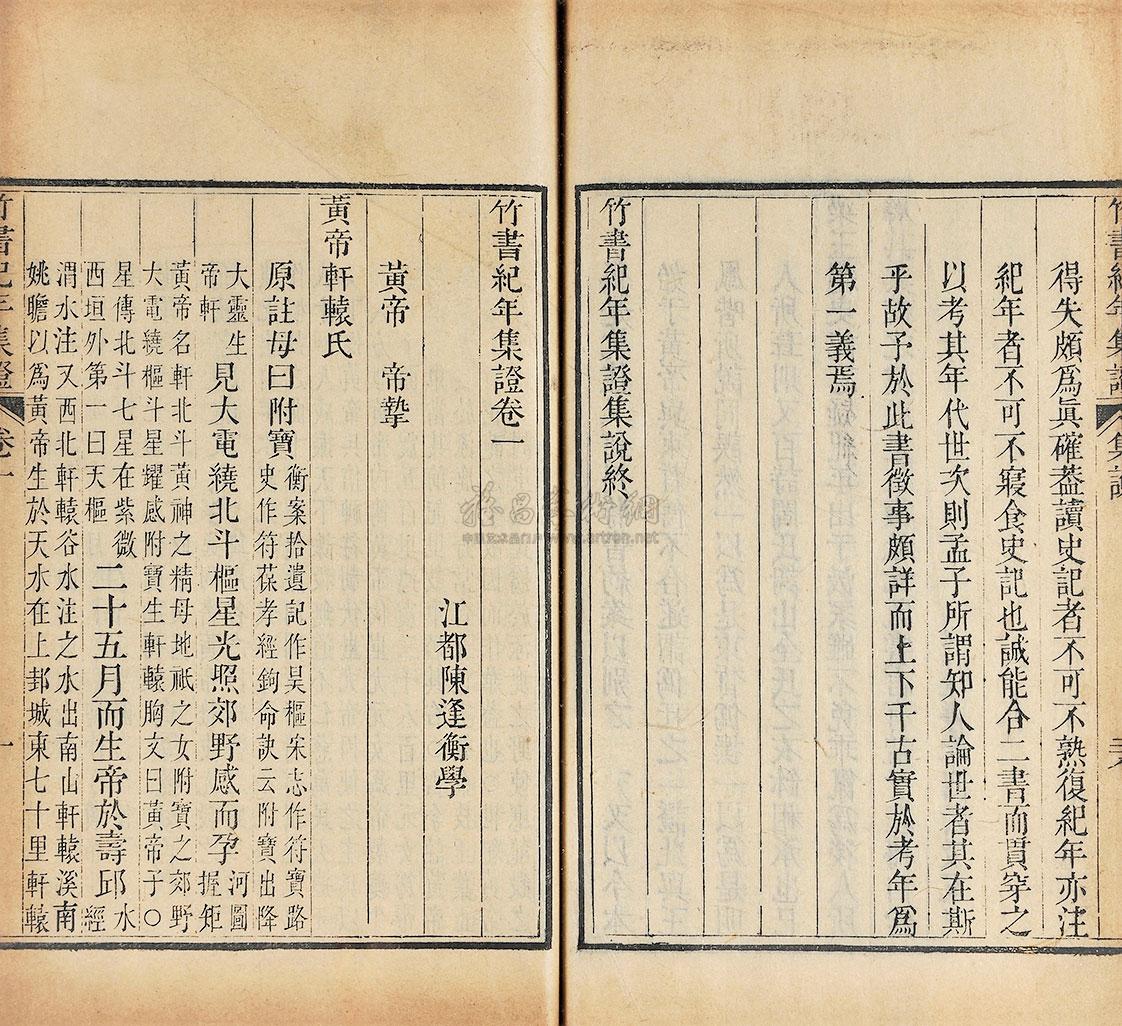 竹書紀年集證 集說
得失頗爲眞確葢讀史記者不可不熟復紀年亦注
紀年者不可不寢食史記也誠能合二書而貫穿之
以考其年代世次則孟子所謂知人論世者其在斯
乎故予於此書徵事頗詳而上下千古實於考年爲
第一義焉
竹書紀年集證集說終
竹書紀年集證卷一
江都陳逢衡學
黃帝 帝摯
黃帝軒轅氏
原註母曰附寶
衡案拾遺記作昊樞宋志作符寶路
史作符葆孝經鉤命訣云附寶出降
大靈生
帝軒
見大電繞北斗樞星光照郊野感而孕
河圖
握矩
黃帝名軒北斗黃神之精母地祇之女附寶之郊野
大電繞樞斗星耀感附寶生軒轅胸文曰黃帝子○
星傳北斗七星在紫微
西垣外第一曰天樞
二十五月而生帝於壽邱
水
經
渭水注又西北軒轅谷水注之水出南山軒轅溪南
姚瞻以爲黃帝生於天水在上邽城東七十里軒轅
竹書紀年集證 卷一 一
www.artron.net